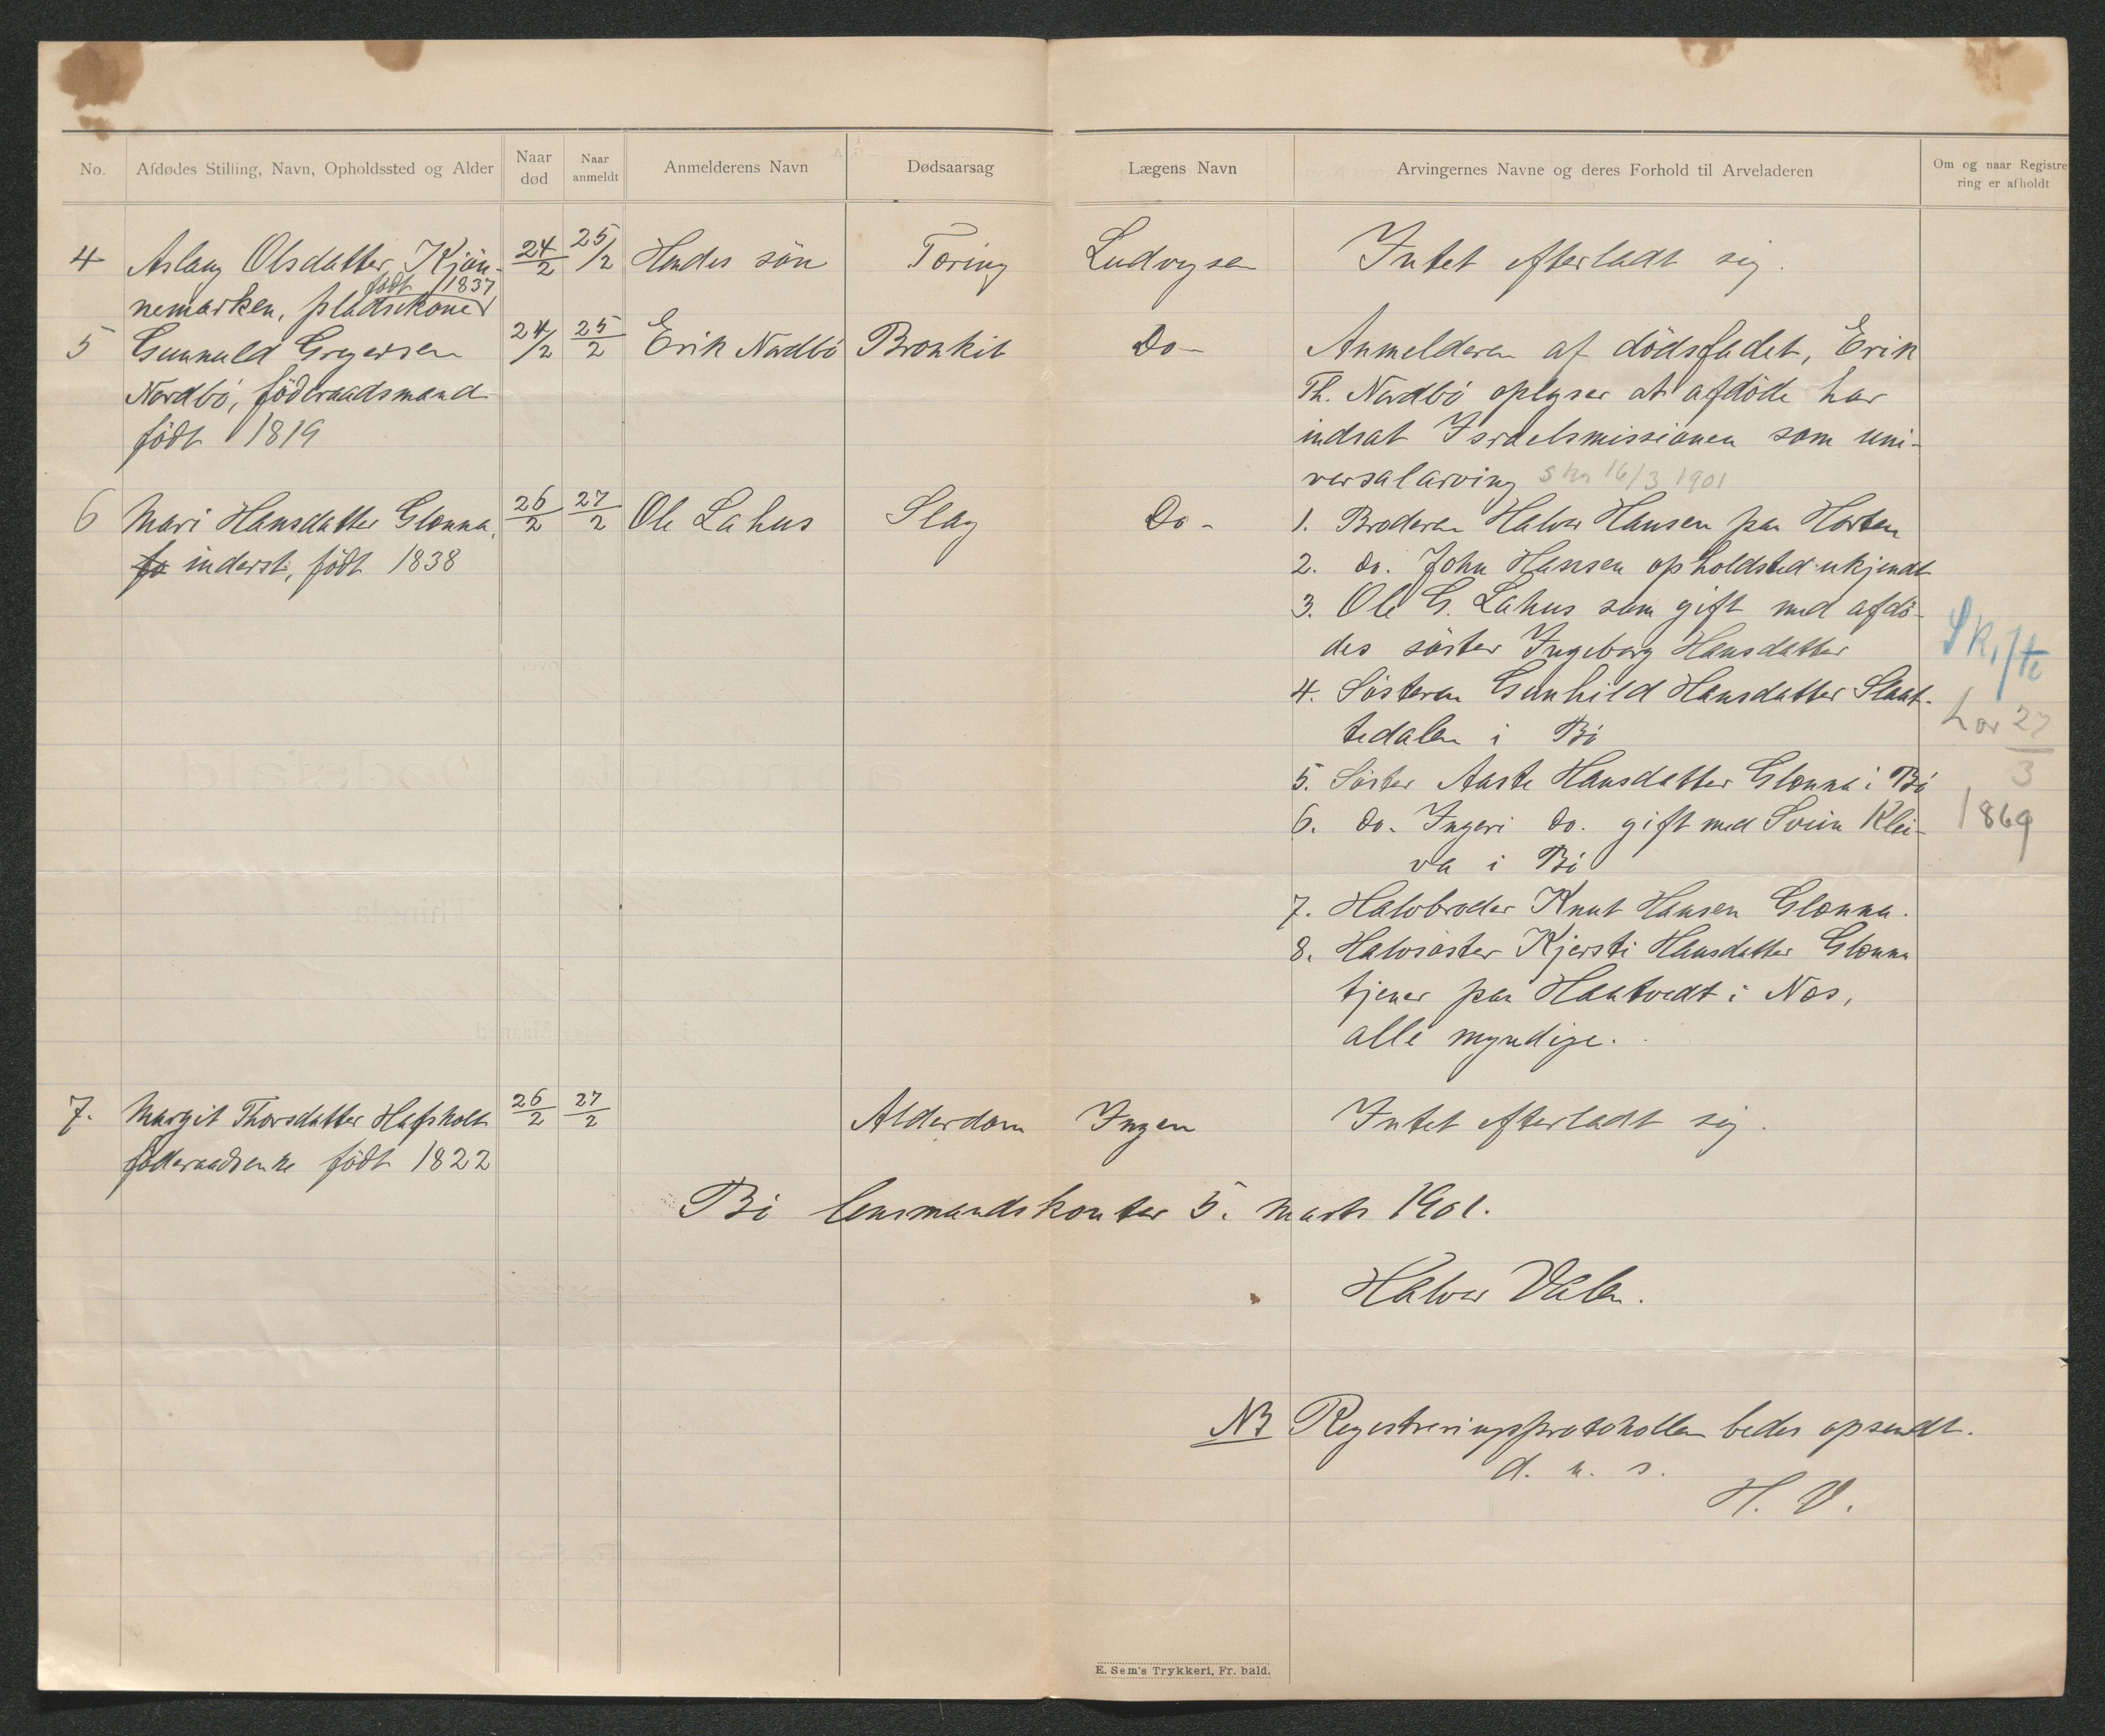 No.
Afdødes Stilling, Navn, Opholdssted og Alder
Naar død
Naar anmeldt
Anmelderens Navn
Dødsaarsag
Lægens Navn
Arvingernes Navne og deres Forhold til Arveladeren
Om og naar Registre-
ring er afholdt
4 Aslaug Olsdatter, Kjøn- 24/2 25/2 Hendes søn Tæring Ludvigsen Intet efterladt sig.
født 1837
nemarken, pladsekone
5 Gunnuld Gregersen 24/2 25/2 Erik Nordbö Bronkit Do- Anmelderen af dödsfadet, Erik
Nordbö, föderaadsmand Th. Nordbö oplyser at afdöde har
födt 1819 indsat Israelsmissionen som uni-
versalarving 16/3 1901
6 Mari Hansdatter Glenna, 26/2 27/2 Ole Lahus Slag Do- 1. Broderen Halvor Hansen paa Horten
inderst, födt 1838 2. do. John Hansen opholdsted ukjendt
3. Ole G. Lahus som gift med afdö-
des söster Ingeborg Hansdatter
4. Sösteren Gunhild Hansdatter Slaat-
tedalen i Bö
5. Söster Aaste Hansdatter Glenna i Bö
6. do. Ingeri do. gift med Svein Klei-
va i Bö
7. Halvbroder Knut Hansen Glenna.
8. Halvsöster Kjersti Hansdatter Glenna
tjener paa Haatvedt i Næs,
alle myndige.
Skifte
27/3
1869
7. Margit Thorsdatter Hafsholt 26/2 27/2 Alderdom Ingen Intet efterladt sig.
föderaadsenke födt 1822
Bö lensmandskontor 5. marts 1901.
Halvor Valen.
NB Registreringsprotokollen bedes opsendt.
d. u. s.
H. V.
E. Sem's Trykkeri, Fr. hald.